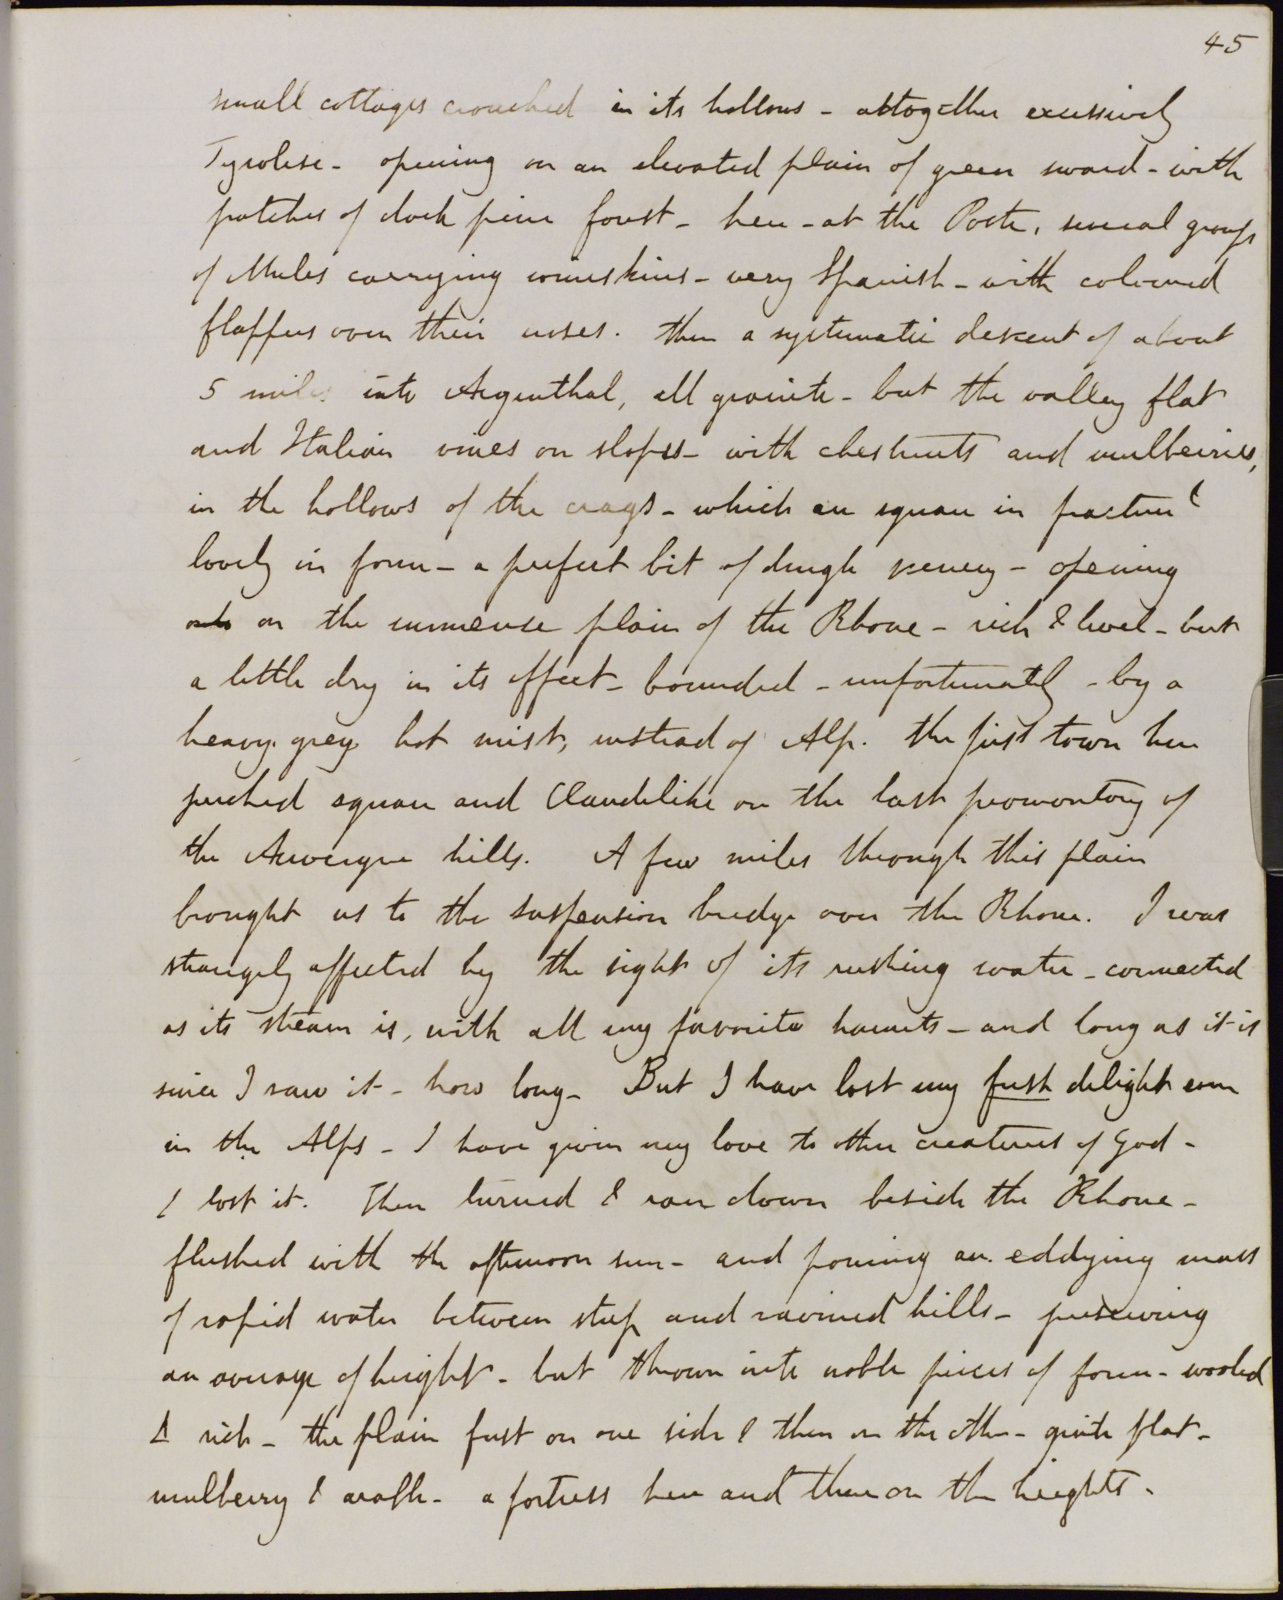 45
small cottages crouched in its hollows - altogether excessively
Tyrolese - opening on an elevated plain of green sward - with
patches of dark pine forest - here - at the Poste, several groups
of Mules carrying wineskins - very Spanish - with coloured
flappers over their noses. Then a systematic descent of about
5 miles into Argenthal, all granite - but the valley flat
and Italian vines on slopes - with chestnuts and mulberries,
in the hollows of the crags - which are square in fracture &
lovely in form - a perfect bit of scenery - opening
on the immense plain of the Rhone - rich & level - but
a little dry in its effect - bounded - unfortunately - by a
heavy grey hot mist, instead of Alp. The first town here
perched square and Claudelike on the last promontory of
the Auvergne hills. A few miles through this plain
brought us to the suspension bridge over the Rhone. I was
strangely affected by the sight of its rushing water - connected
as its stream is, with all my favorite haunts - and long as it is
since I saw it - how long - But I have lost my fresh delight even
in the Alps - I have given my love to other creatures of God -
& lost it. Then turned & ran down beside the Rhone -
flushed with the afternoon sun - and pouring an eddying mass
of rapid water between steep and ravined hills - preserving
an average of height - but thrown into noble pieces of form - wooded
& rich - the plain first on one side & then on the other - quite flat -
mulberry & - a fortress here and there on the heights -